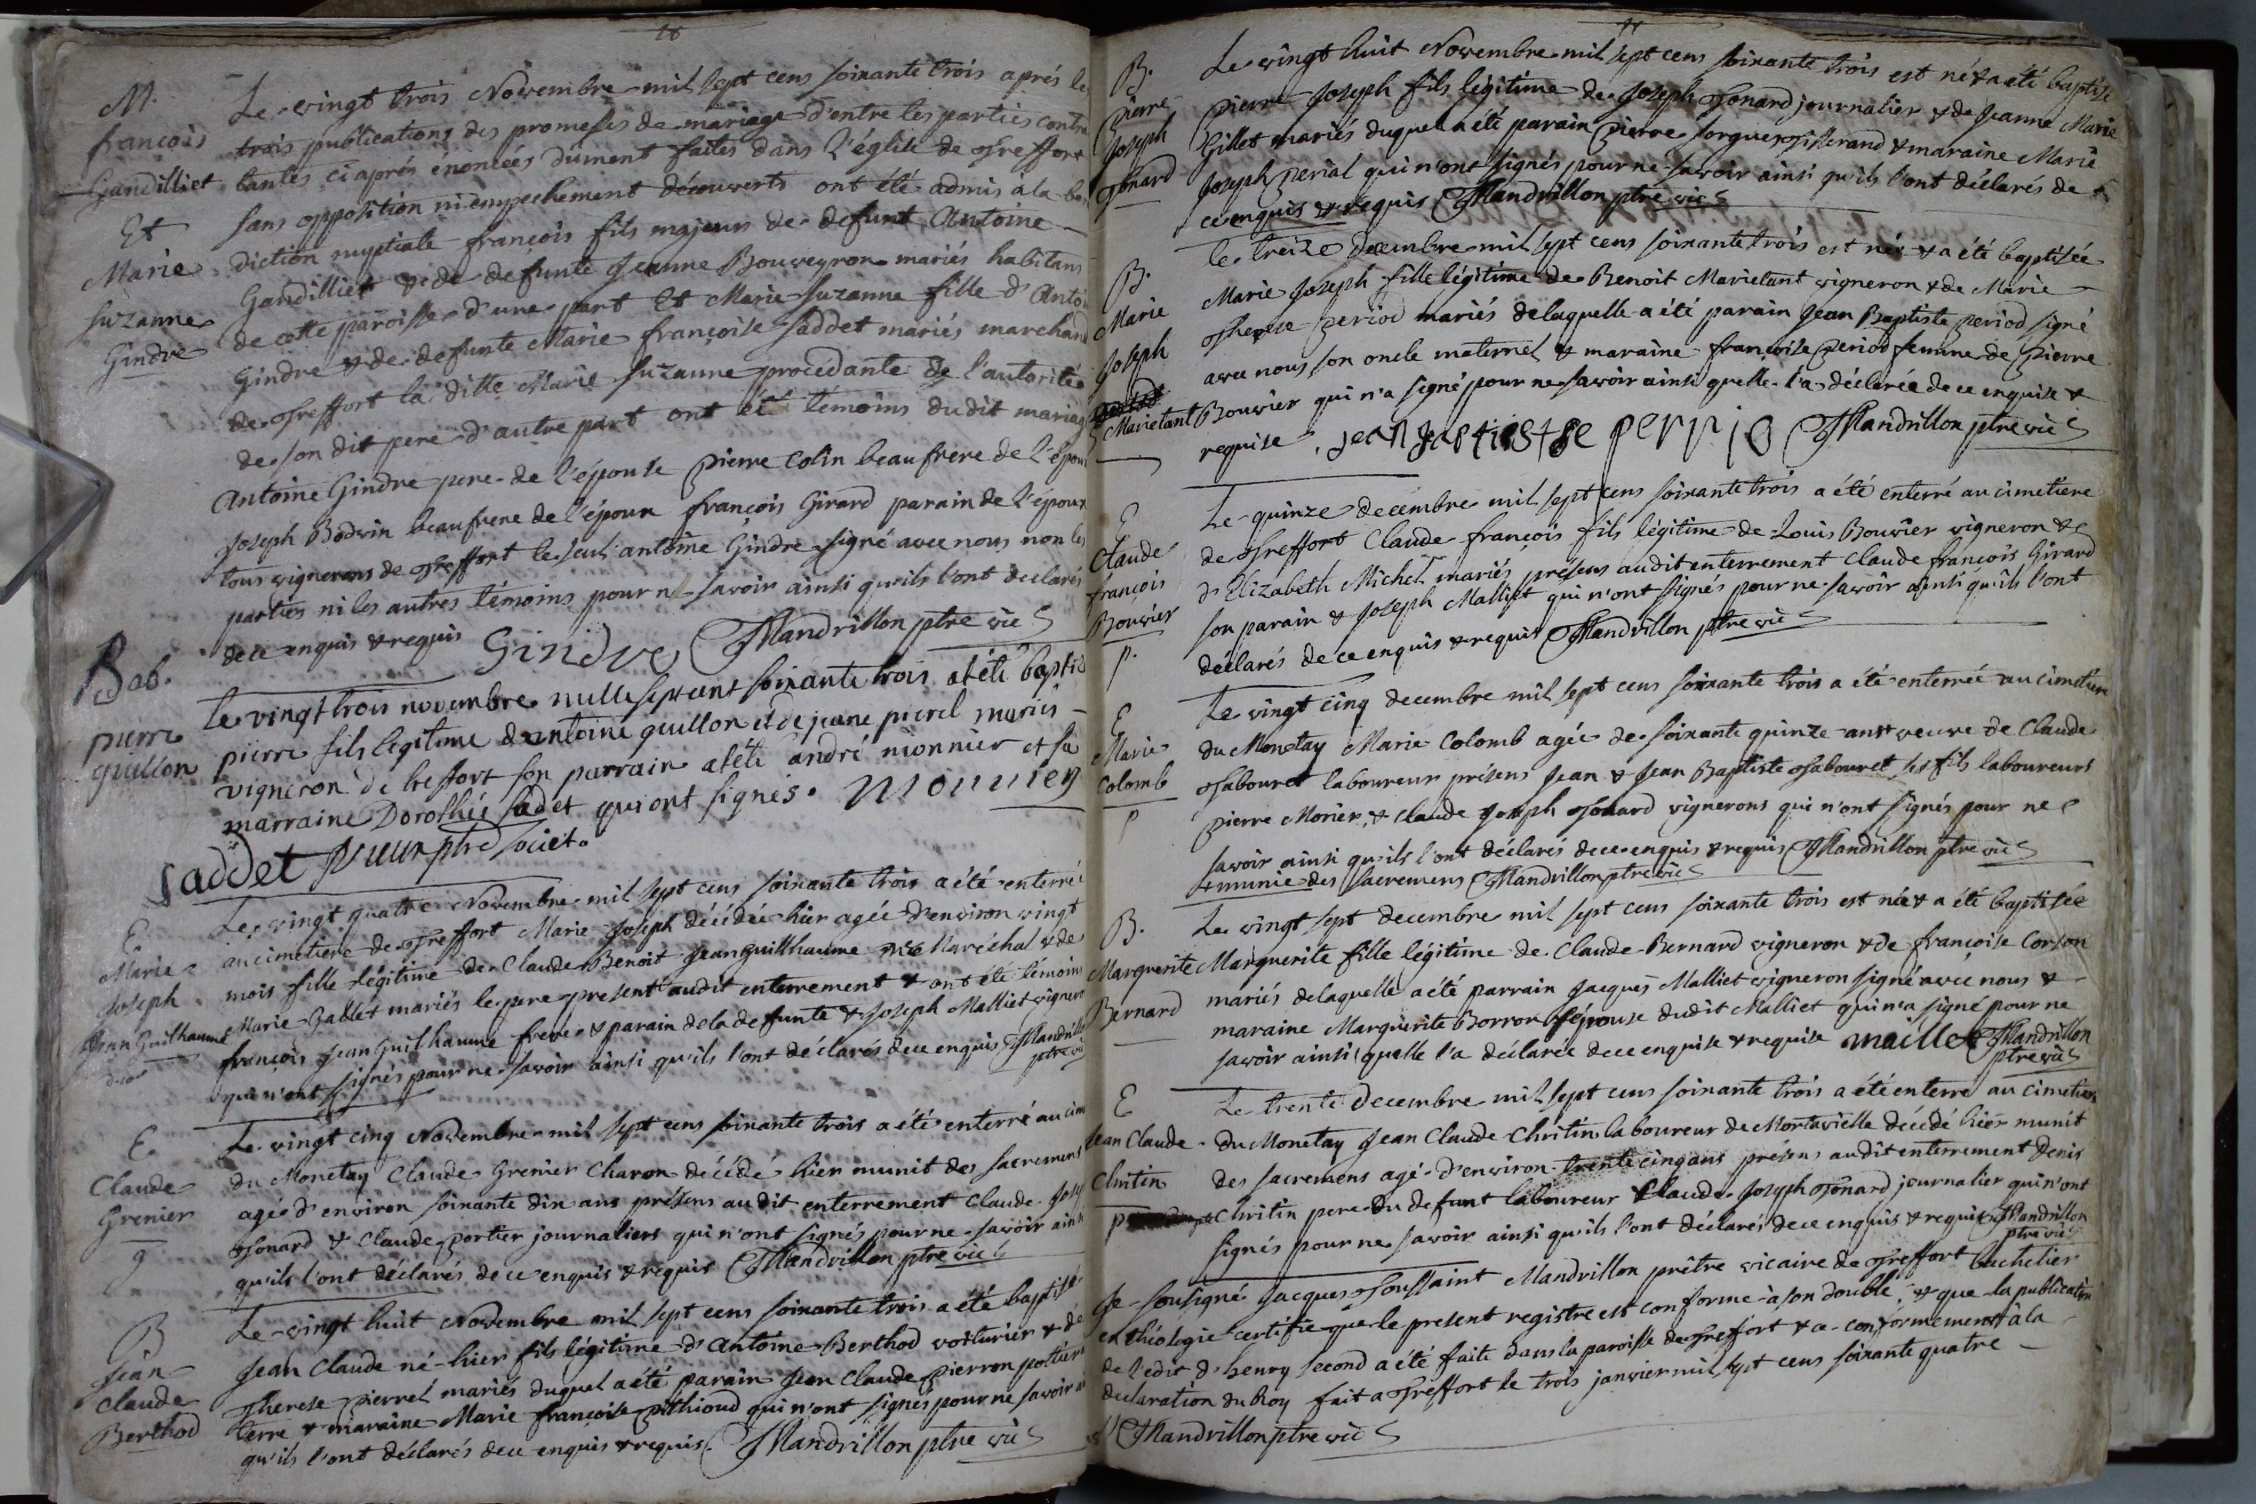 M.
françois
Gandilliet
Et
Marie
Suzanne
Gindre
Le vingt trois Novembre mil sept cens soixante trois aprés les
trois publications des promesses de mariage d'entre les parties contra
tantes ci aprés énoncées dûment faites dans l'église de Treffort
sans opposition ni empeschement découverts ont été admis a la béné
diction nuptiale françois fils majeur de defunt Antoine
Gandilliet & de defunte Jeanne Bouveyron mariés habitans
de cette paroisse d'une part Et Marie Suzanne fille d'Antoi
Gindre & de defunte Marie françoise Saddet mariés marchand
de Treffort la ditte Marie Suzanne procedante de l'autorité
de son dit pere d'autre part ont été témoins dudit mariage
Antoine Gindre pere de l'épouse Pierre Colin beaufrere de l'époux
Joseph Bodvin beaufrere de l'époux françois Girard parain de l'époux
tous vignerons de Treffort le seul antoine Gindre signé avec nous non les
parties ni les autres témoins pour ne savoir ainsi qu'ils l'ont declarés
de ce enquis & requis Gindre Mandrillon ptre vic
Bab.
pierre
guillon
le vingt trois novembre mille sept cent soixante trois at été baptisé
pierre fils legitime d'antoine guillon et de jeanne pierrel mariés
vigneron de treffort son parrain at été andré monnier et sa
marraine Dorothée sadet qui ont signés. Monnier
Saddet ptre societ.
E
Marie
Joseph
Jean Guilhaume
Le vingt quatre Novembre mil sept cens soixante trois a été enterré
au cimetiere de Treffort Marie Joseph décédée hier agée d'environ vingt
mois fille légitime de Claude Benoit Jeanguilhaume Maréchal & de
Marie Gallet mariés le pere present audit enterrement & ont été témoins
françois Jean Guilhaume frere & parain de la defunte & Joseph Malliet vigneron
qui n'ont signés pour ne savoir ainsi qu'ils l'ont déclarés de ce enquis Mandrillon
ptre vic
E
Claude
Grenier
g
Le vingt cinq Novembre mil sept cens soixante trois a été enterré au cim
du Monetay Claude Grenier Charon décédé hier munit des sacremens
agé d'environ soixante dix ans présens audit enterrement Claude Jose
Tonard & Claude Portier journaliers qui n'ont signés pour ne savoir ainsi
qu'ils l'ont déclarés de ce enquis & requis Mandrillon ptre vic
B
Jean
Claude
Berthod
Le vingt huit Novembre mil sept cens soixante trois a été baptisé
Jean Claude né hier fils légitime d'Antoine Berthod voiturier & de
Therese Pierrel mariés duquel a été parain Jean Claude Pierron potier
terre & maraine Marie françoise Pithioud qui n'ont signés pour ne savoir
qu'ils l'ont déclarés de ce enquis & requis. Mandrillon ptre vic
B.
Pierre
Joseph
Tonard
Le vingt huit Novembre mil sept cens soixante trois est né & a été baptisé
Pierre Joseph fils légitime de Joseph Tonard journalier & de Jeanne Marie
Gillet mariés duquel a été parain Pierre Tisserand & maraine Marie
Joseph Perial qui n'ont signés pour ne savoir ainsi qu'ils l'ont déclarés de
ce enquis & requis Mandrillon ptre vic
B.
Marie
Joseph
Marietant
le treize Decembre mil sept cens soixante trois est née & a été baptisée
Marie Joseph fille légitime de Benoit Marietant vigneron & de Marie
Therese Period mariés de laquelle a été parain Jean Baptiste Period signé
avec nous son oncle maternel & maraine françoise Period femme de Pierre
Bouvier qui n'a signé pour ne savoir ainsi quelle l'a déclarée de ce enquise &
requise. Mandrillon ptre vic
E
Claude
françois
Bouvier
p.
Le quinze decembre mil sept cens soixante trois a été enterré au cimetiere
de Treffort Claude françois fils légitime de Louis Bouvier vigneron &
d'Elizabeth Michel mariés présens audit enterrement Claude françois Girard
son parain & Joseph Malliet qui n'ont signés pour ne savoir ainsi qu'ils l'ont
déclarés de ce enquis & requis Mandrillon ptre vic
E
Marie
Colomb
p
Le vingt cinq decembre mil sept cens soixante trois a été enterrée au cimetiere
du Monetay Marie Colomb agée de soixante quinze ans + veuve de Claude
Tabouret laboureur présens Jean & Jean Baptiste Tabouret ses fils laboureurs
Pierre Morier & Claude Joseph Tonard vignerons qui n'ont signés pour ne
savoir ainsi qu'ils l'ont déclarés de ce enquis & requis Mandrillon ptre vic
+ munie des sacremens Mandrillon ptre vic
B.
Marguerite
Bernard
Le vingt sept decembre mil sept cens soixante trois est née & a été baptisée
Marguerite fille légitime de Claude Bernard vigneron & de françoise Corson
mariés de laquelle a été parrain Jacques Malliet vigneron signé avec nous &
maraine Marguerite Borron épouse dudit Malliet qui n'a signé pour ne
savoir ainsi quelle l'a déclarée de ce enquise & requise maillet Mandrillon
ptre vic
E
Jean Claude
Chritin
p
Le trente Decembre mil sept cens soixante trois a été enterré au cimetiere
du Monetay Jean Claude Chritin laboureur de Mortavielle décédé hier munit
des sacremens agé d'environ trente cinq ans présens audit enterrement Denis
Chritin pere du defunt laboureur & Claude Joseph Tonard journalier qui n'ont
signés pour ne savoir ainsi qu'ils l'ont déclarés de ce enquis & requis Mandrillon
ptre vic
Je sousigné Jacques Toussaint Mandrillon prêtre vicaire de Treffort bachelier
en théologie certifie que le present registre est conforme à son double, & que la publication
de l'edit d'henry second a été faite dans la paroisse de Treffort & ce conformement à la
declaration du Roy fait a Treffort le trois janvier mil sept cens soixante quatre
Mandrillon ptre vic